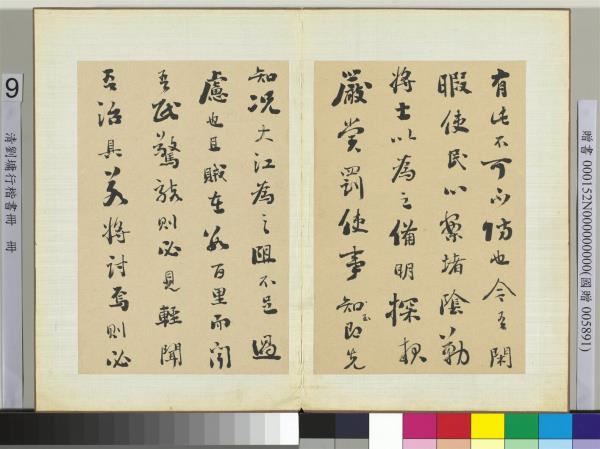 有此不可不防也今吾閑
暇使民心案堵陰勒
將士以為之備明探報
嚴賞罰使事知至即先
知况大江為之阻不足過
慮也且賊在數百里而聞
吾民驚駭則必見輕聞
吾治具若將討焉則必
9
清劉墉行楷書冊 冊
贈書 000152N000000000(國贈 005891)